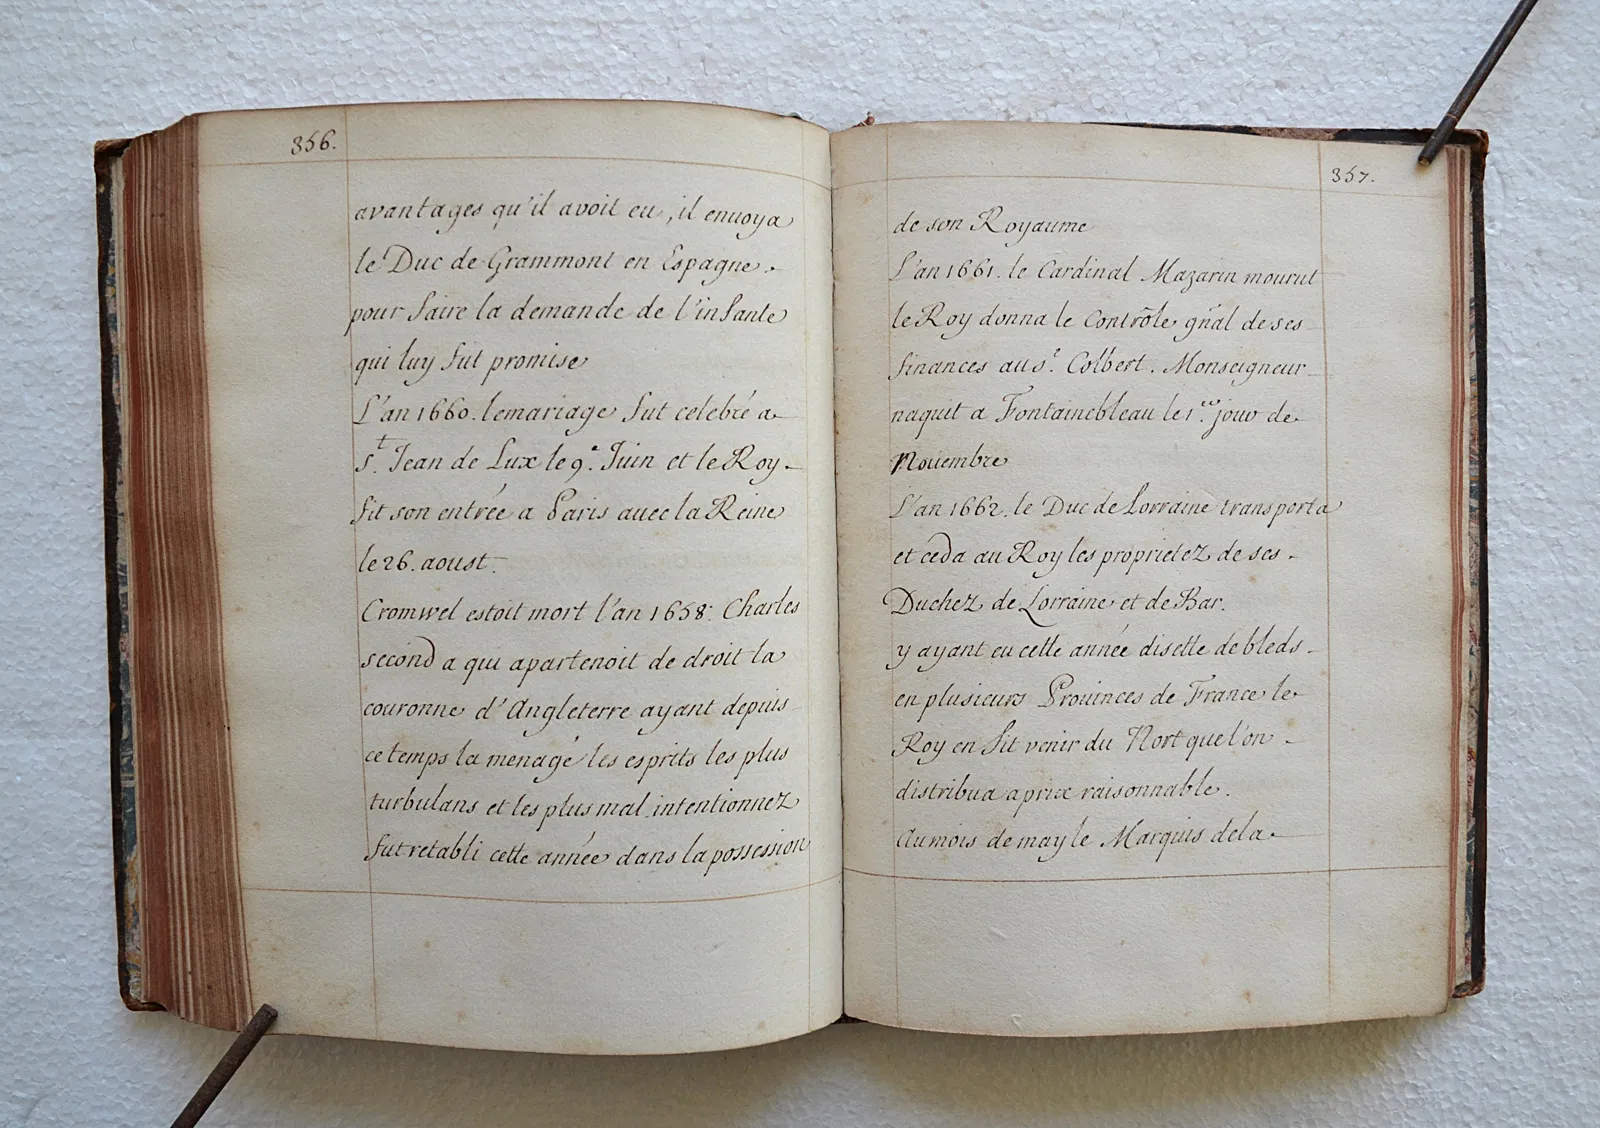 356.
avantages qu'il avoit eu, il enuoya
le Duc de Grammont en Espagne.
pour faire la demande de l'infante
qui luy fut promise
L'an 1660. le mariage fut celebré a
St. Jean de Lux le 9.e Juin et le Roy
fit son entrée a Paris auec la Reine
le 26. aoust.
Cromwel estoit mort l'an 1658: Charles
second a qui apartenoit de droit la
couronne d'Angleterre ayant depuis
ce temps la menagé les esprits les plus
turbulans et les plus mal intentionnez
fut retabli cette année dans la possession
357.
de son Royaume
L'an 1661. le Cardinal Mazarin mourut
le Roy donna le Contrõle gñal de ses
finances au Sr. Colbert. Monseigneur
naquit a Fontainebleau le 1.er jour de
Nouembre
L'an 1662. le Duc de Lorraine transporta
et ceda au Roy les proprietez de ses
Duchez de Lorraine et de Bar.
y ayant eu cette année disette de bleds
en plusieurs Prouinces de France le
Roy en fit venir du Nort que l'on
distribua a prix raisonnable.
Au mois de may le Marquis de la